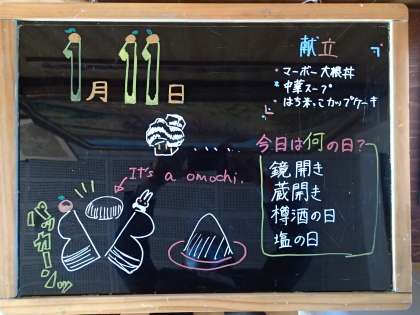 1月11日
献立
・マーボー大根丼
・中華スープ
・はち米っこカップケーキ
.....
今日は何の日?
鏡開き
蔵開き
樽酒の日
塩の日
It's a omochi.
パッカーンッ